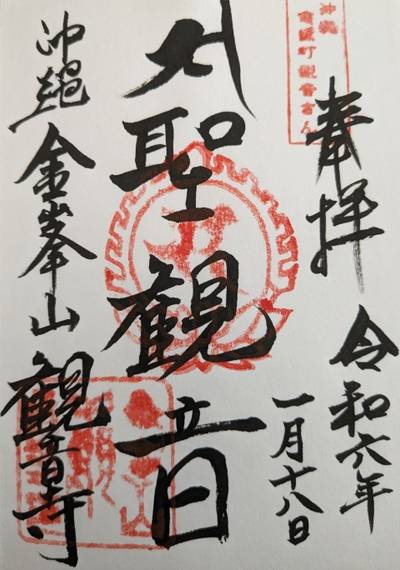 沖縄
町観音さん
奉拝
令和六年
一月十八日
聖観音
沖縄金峯山観音寺